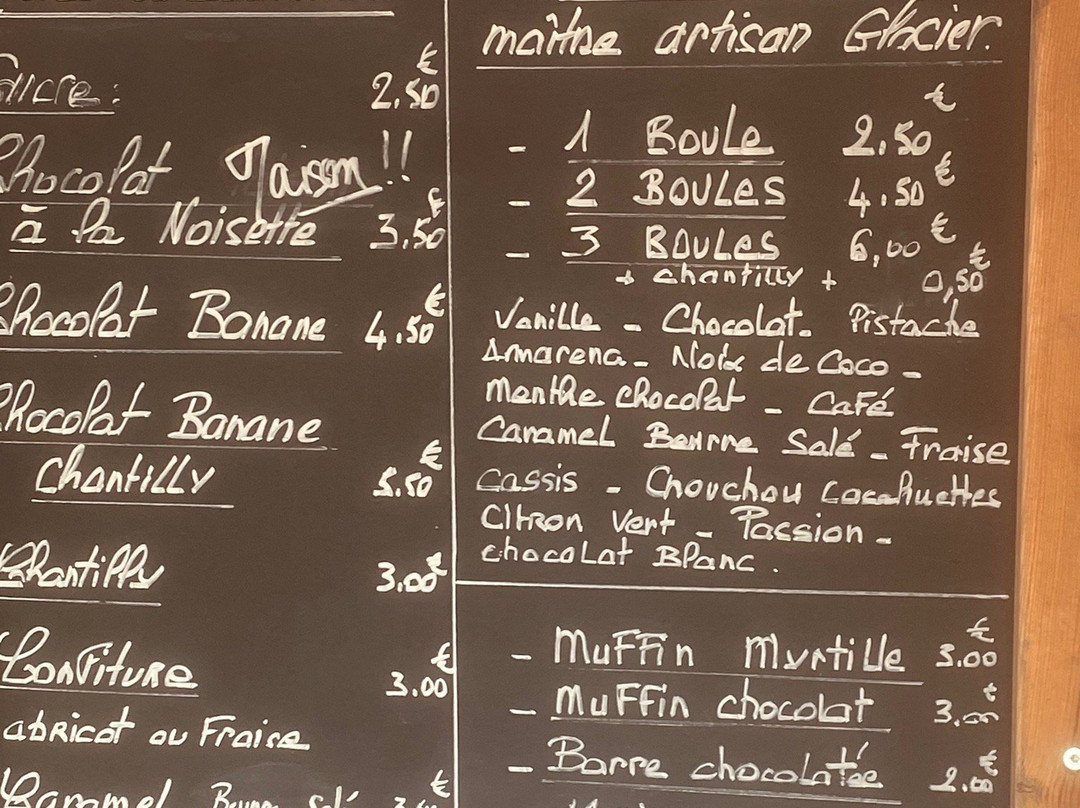 Sucre: 2.50€
Chocolat Maison!!
à la Noisette 3,50€
Chocolat Banane 4.50€
Chocolat Banane
Chantilly 5.50€
Chantilly 3.00€
Confiture 3.00€
abricot ou Fraise
Caramel Beurre Salé €
maître artisan Glacier.
- 1 Boule 2.50€
- 2 BOULES 4.50€
- 3 BOULES 6,00€
+ chantilly + 0,50€
Vanille - Chocolat. Pistache
Amarena - Noix de Coco -
Menthe chocolat - CaFé
Caramel Beurre Salé - Fraise
Cassis - Chouchou Cacahuettes
Citron Vert - Passion -
chocolat Blanc.
- Muffin Myrtille 3.00€
- Muffin chocolat 3.00€
- Barre chocolatée 2.00€